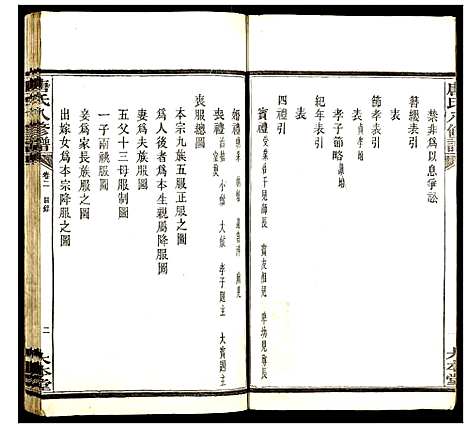 禁非為以息爭訟
表
節孝表引
表
紀年表引
孝子節略
四禮引
賓禮
婚禮
喪禮 小殮 大殮 孝子題主 大賓題主
喪服總圖
本宗九族五服正服之圖
為人後者為本生親屬降服圖
妻為夫族服圖
五父十三母服制圖
一子兩祧服圖
妾為家長族服之圖
出嫁女為本宗降服之圖
氏八修譜
卷二
目錄
二
大本堂